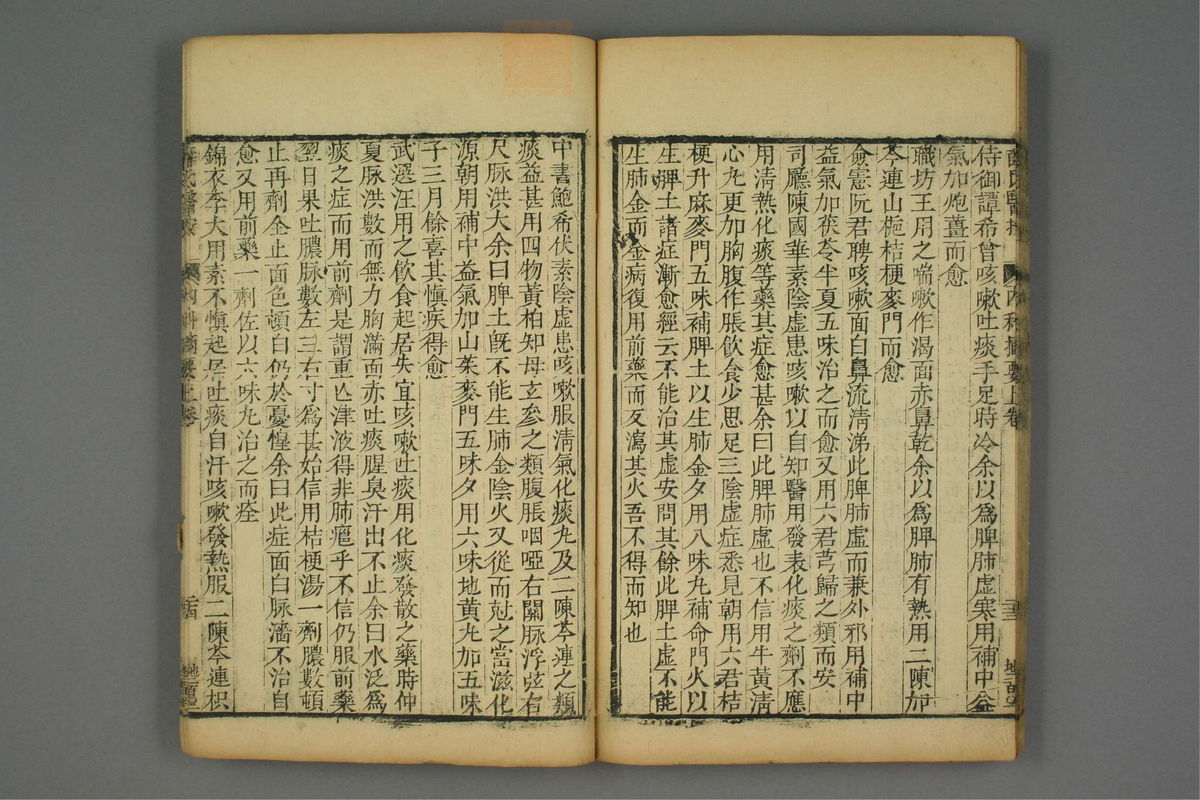 侍御譚希曾咳嗽吐痰手足時冷余以爲脾肺虛寒用補中益
氣加炮薑而愈
職坊王用之喘嗽作渴面赤鼻乾余以爲脾肺有熱用二陳加
芩連山梔桔梗麥門而愈
僉憲阮君聘咳嗽面白鼻流淸涕此脾肺虛而兼外邪用補中
益氣加茯苓半夏五味治之而愈又用六君芎歸之類而安
司廳陳國華素陰虛患咳嗽以自知醫用發表化痰之劑不應
用淸熱化痰等藥其症愈甚余曰此脾肺虛也不信用牛黃淸
心丸更加胸腹作脹飲食少思足三陰虛症悉見朝用六君桔
梗升麻麥門五味補脾土以生肺金夕用八味丸補命門火以
生脾土諸症漸愈經云不能治其虛安問其餘此脾土虛不能
生肺金而金病復用前藥而反瀉其火吾不得而知也
中書鮑希伏素陰虛患咳嗽服淸氣化痰丸及二陳芩連之類
痰益甚用四物黃柏知母玄參之類腹脹咽啞右關脉浮弦右
尺脉洪大余曰脾土旣不能生肺金陰火又從而尅之當滋化
源朝用補中益氣加山茱麥門五味夕用六味地黃丸加五味
子三月餘喜其愼疾得愈
武選汪用之飲食起居失宜咳嗽吐痰用化痰發散之藥時仲
夏脉洪數而無力胸滿面赤吐痰腥臭汗出不止余曰水泛爲
痰之症而用前劑是謂重亾津液得非肺癰乎不信仍服前藥
翌日果吐膿脉數左三右寸爲甚始信用桔梗湯一劑膿數頓
止再劑全止面色頓白仍於憂惶余曰此症面白脉濇不治自
愈又用前藥一劑佐以六味丸治之而痊
錦衣李大用素不愼起居吐痰自汗咳嗽發熱服二陳芩連枳